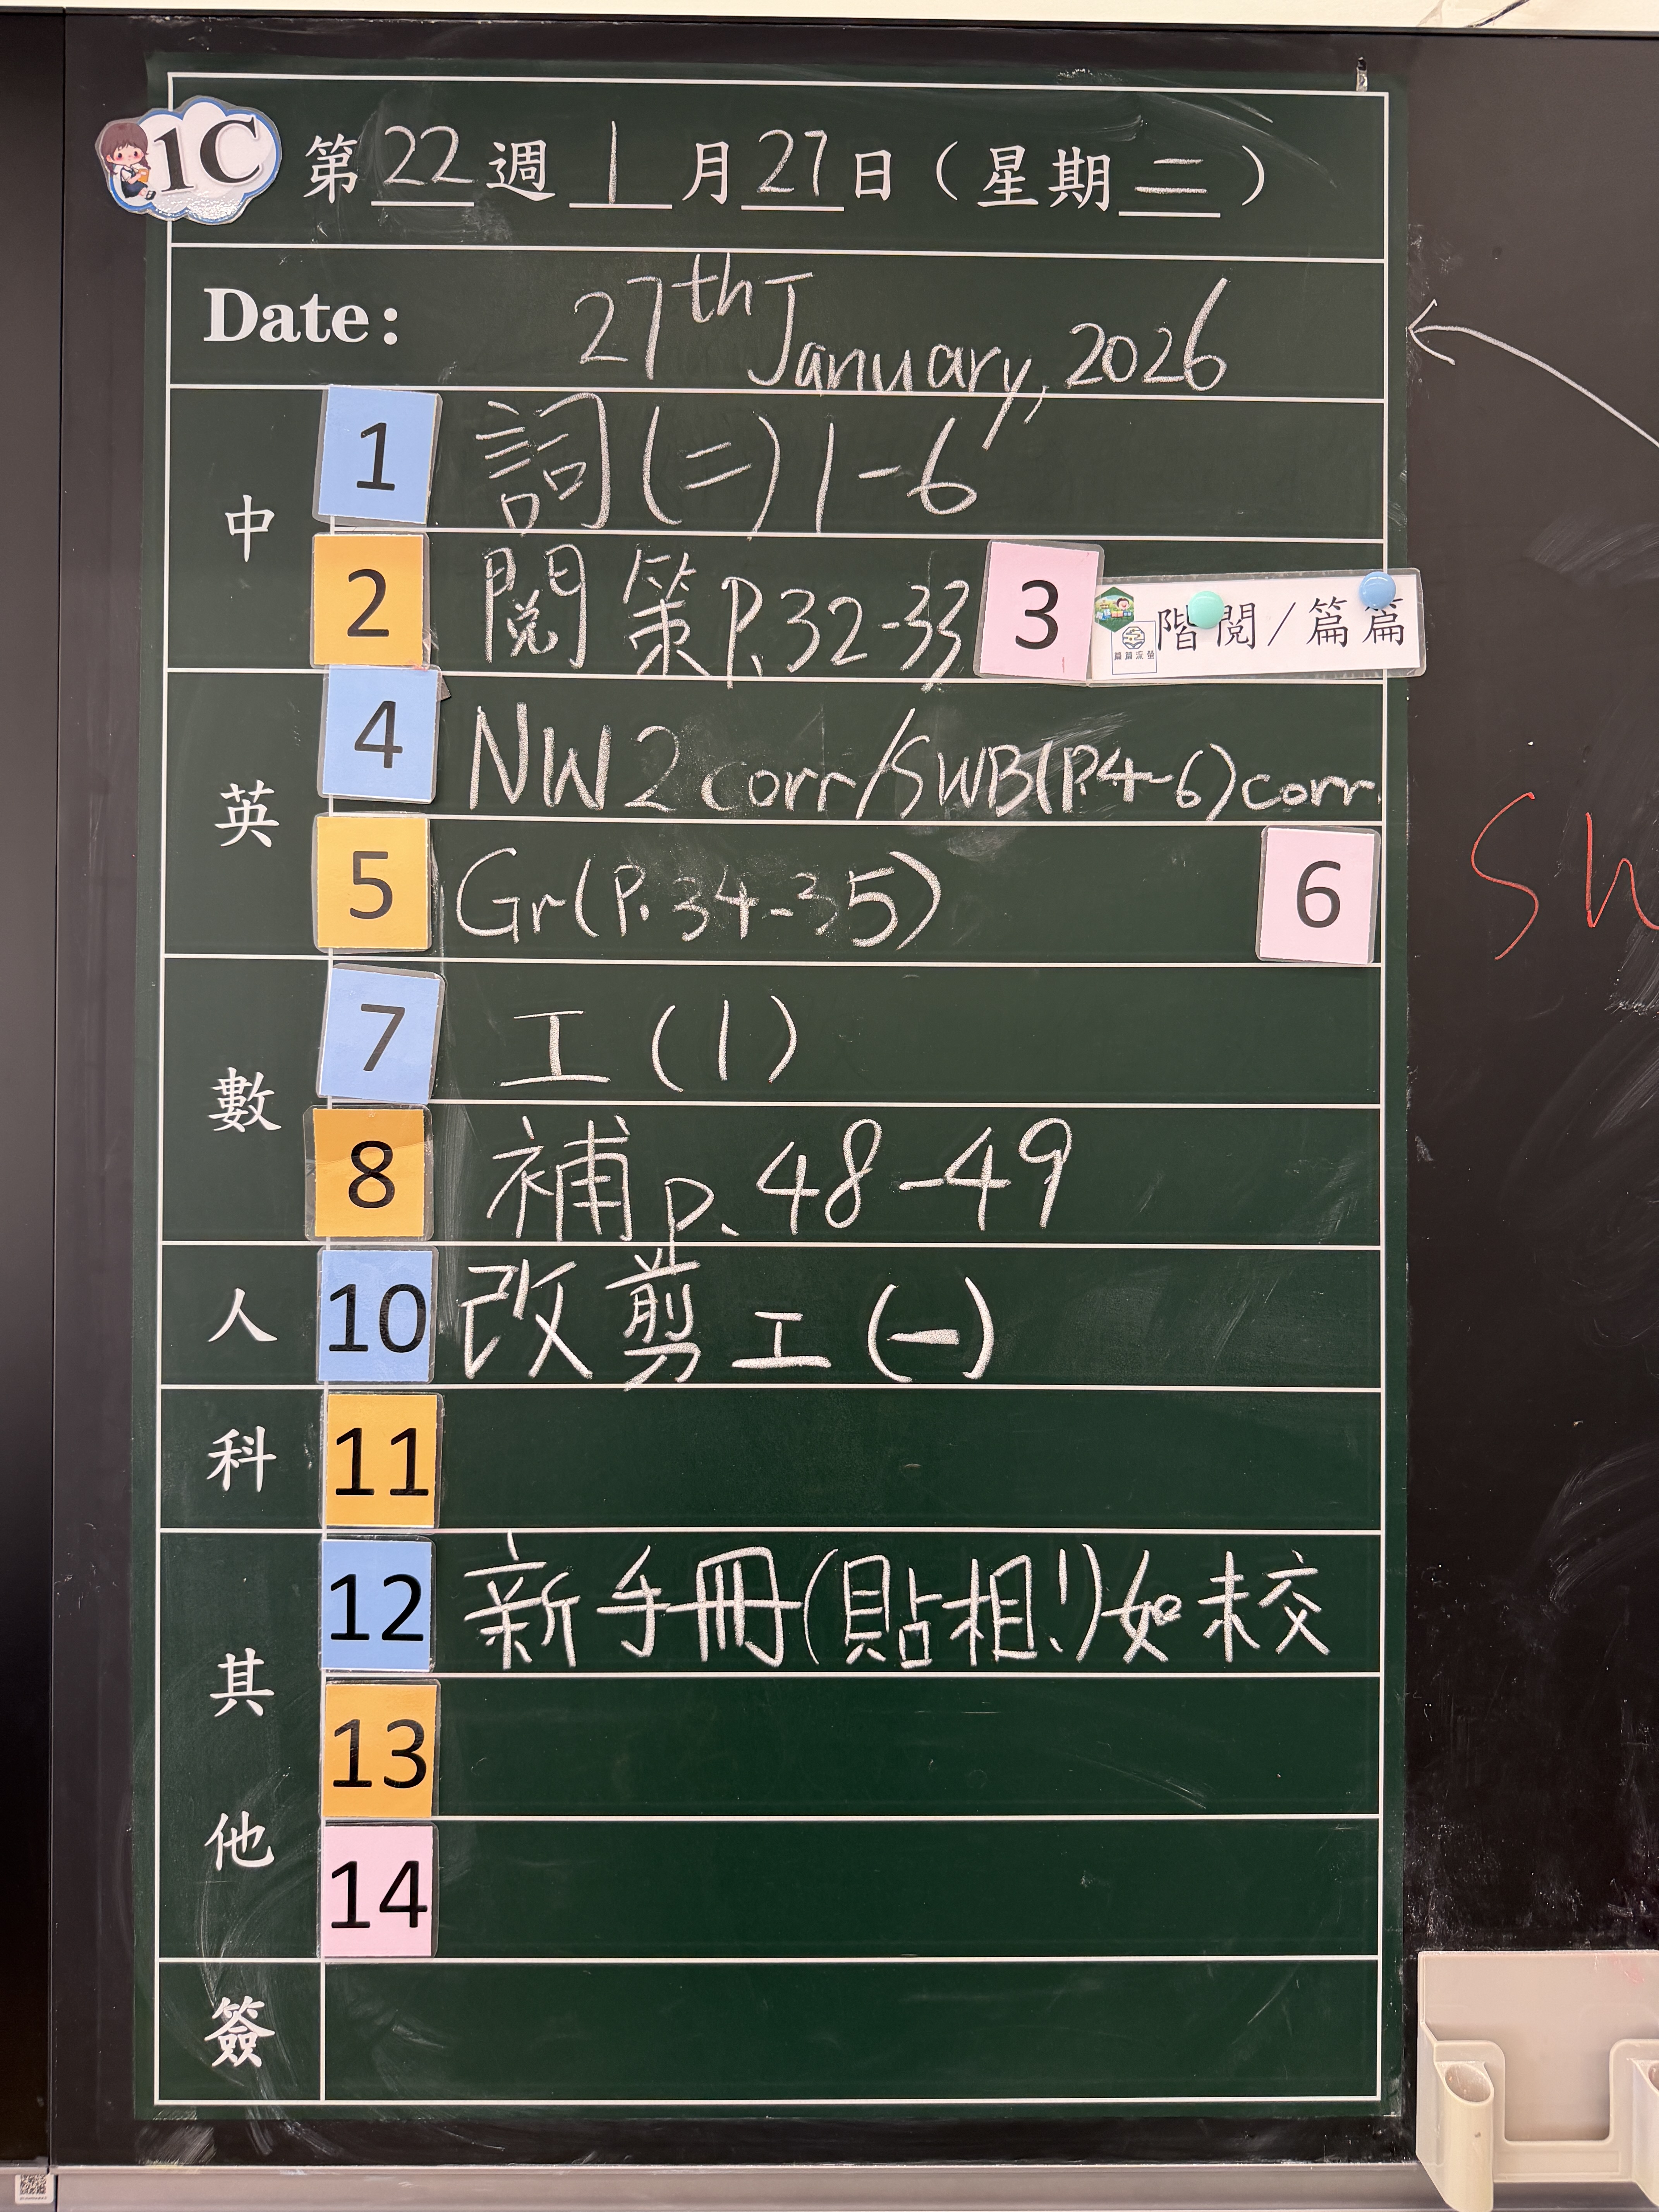 1C 第 22 週 1 月 27 日（星期 二）
Date: 27th January, 2026
中
1 詞(二)1-6
2 閱策P.32-33 3 階閱/篇篇
篇篇流螢
英
4 NW2 corr/SWB(P.4-6)corr.
5 Gr(P.34-35) 6
數
7 工(1)
8 補P.48-49
人 10 改剪工(一)
科 11
其他
12 新手冊(貼相!)如未交
13
14
簽